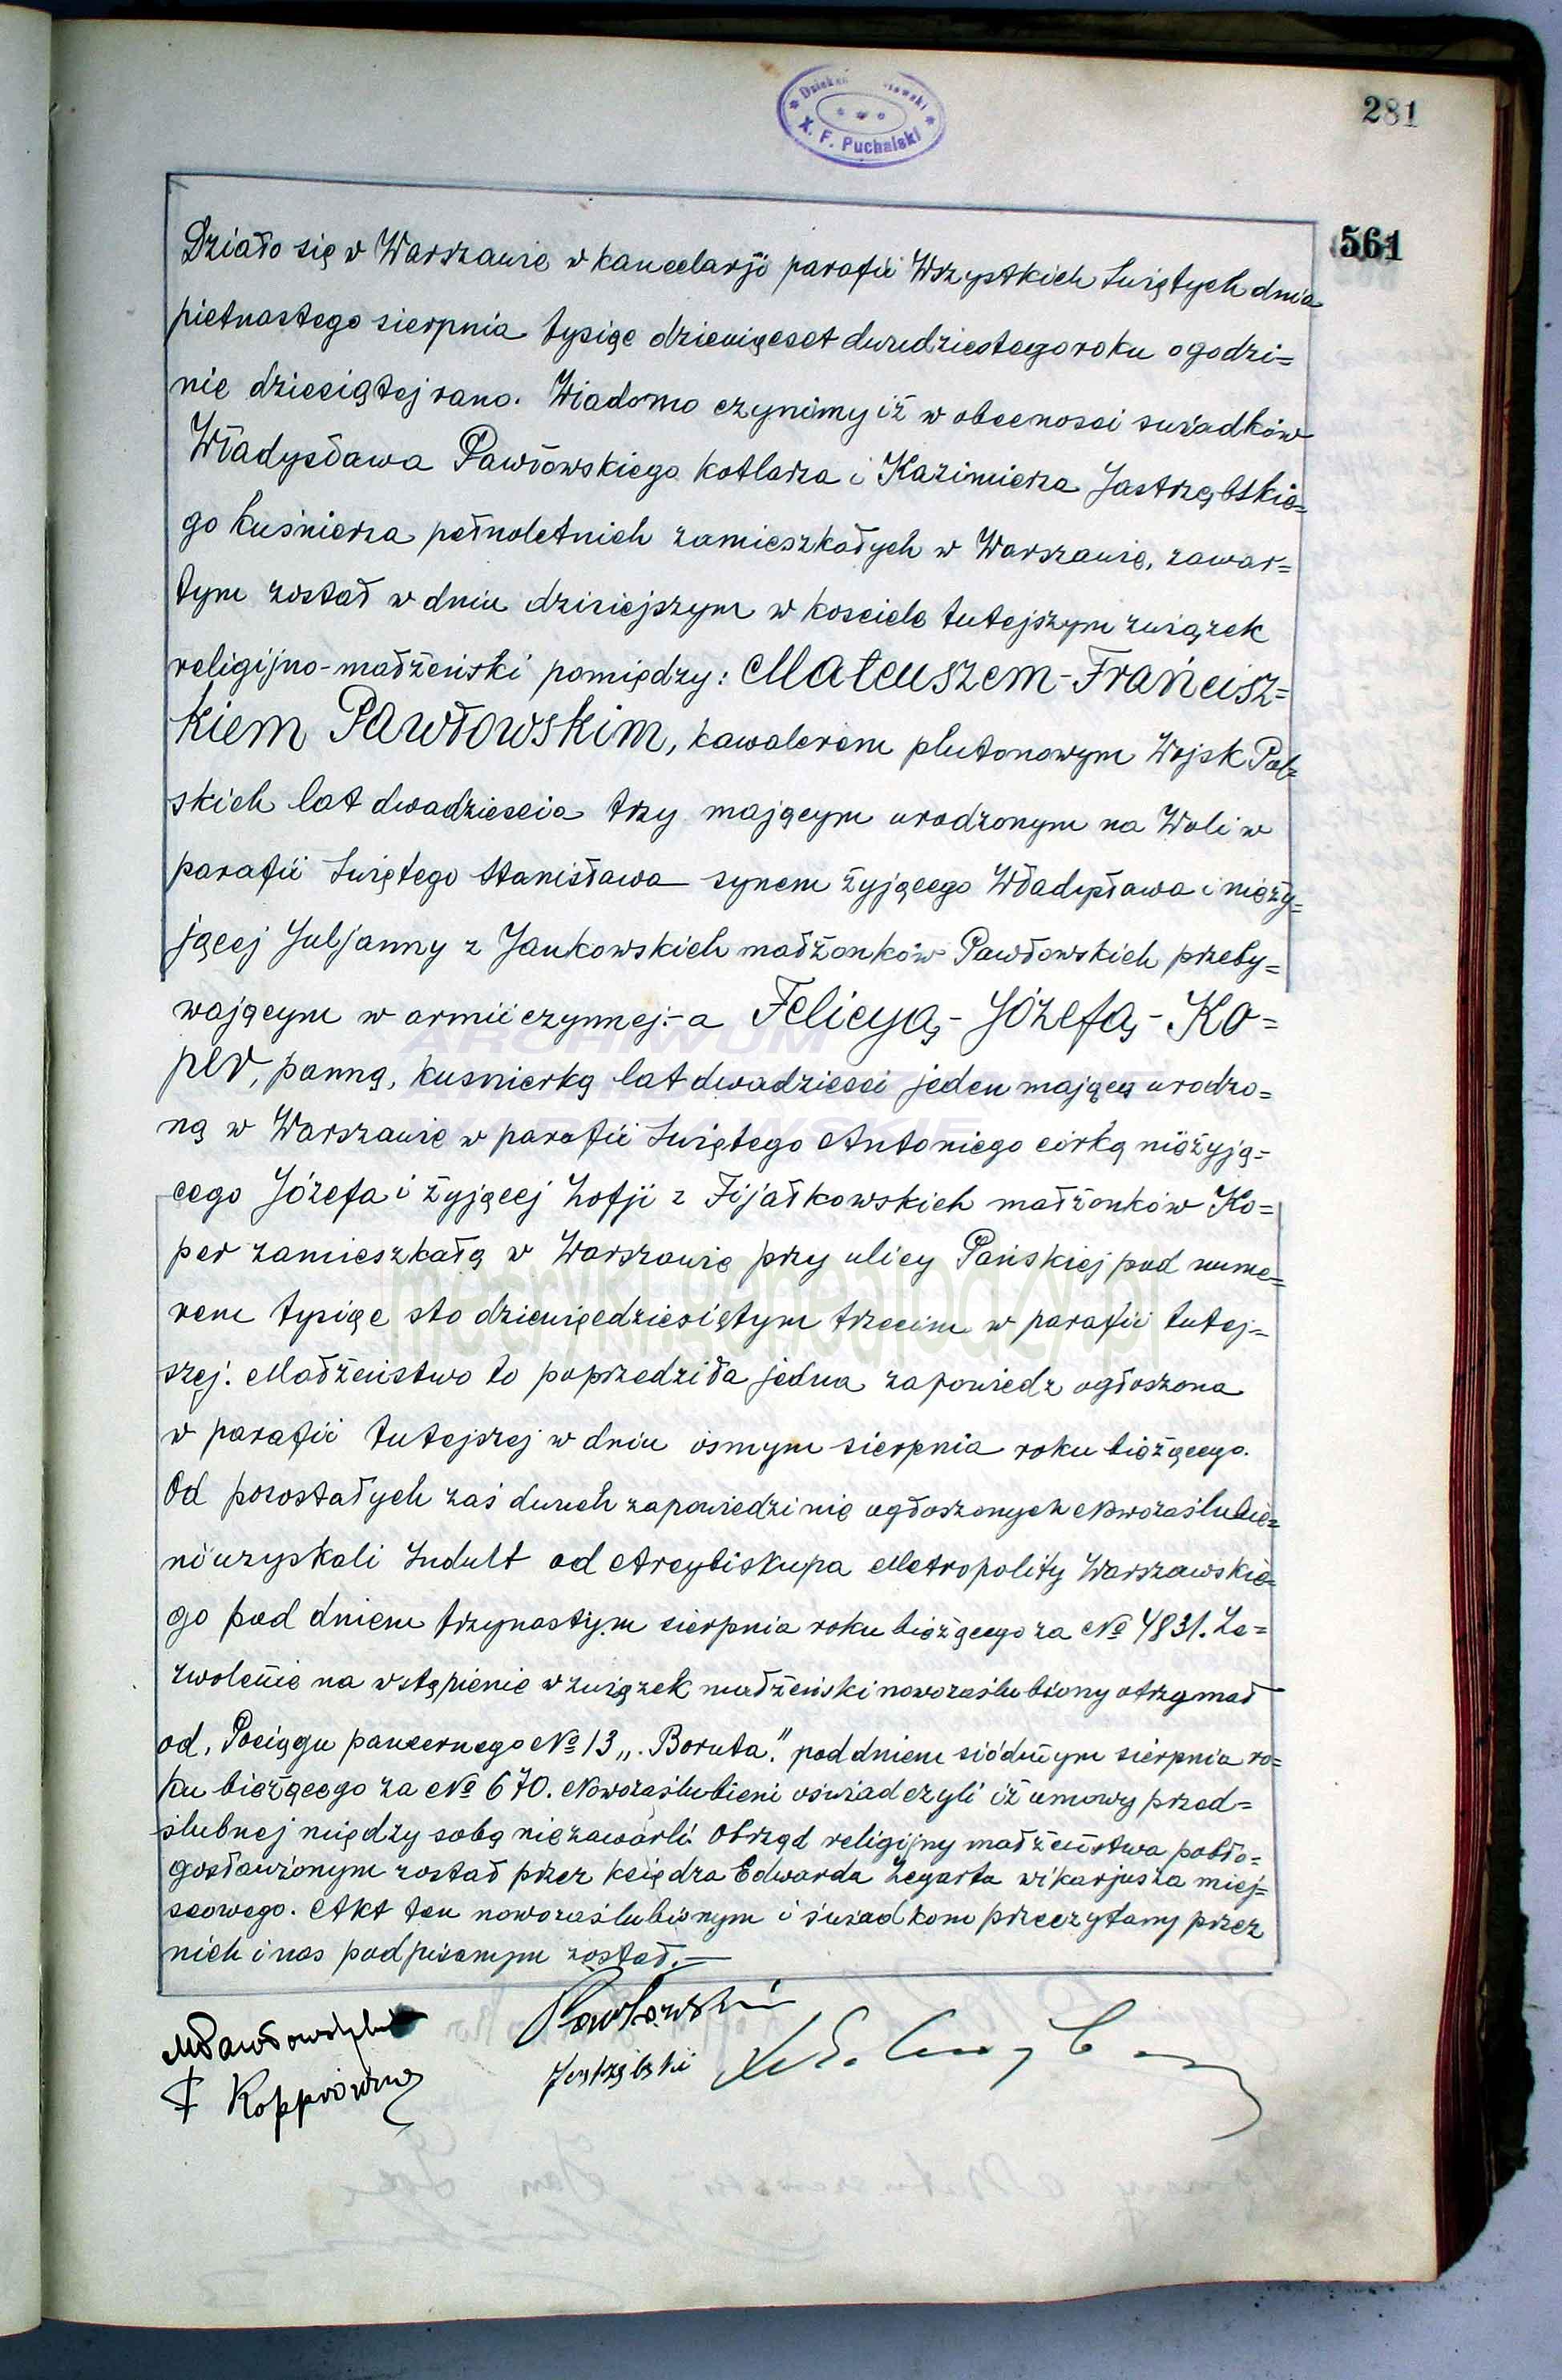 281
X. F. Puchalski
561
Działo się w Warszawie w kancelarji parafii Wszystkich Świętych dnia
pietnastego sierpnia tysiąc dziewięcset dwudziestego roku o godzi=
nie dziesiątej rano. Wiadomo czynimy iż w obecnosci swiadków
Władysława Pawłowskiego kotlarza i Kazimierza Jastrzębskie=
go kuśnierza pełnoletnich zamieszkałych w Warszawie, zawar=
tym został w dniu dzisiejszym w kosciele tutejszym związek
religijno-małżeński pomiędzy: Mateuszem-Francisz=
kiem Pawłowskim, kawalerem plutonowym Wojsk Pol=
skich lat dwadziescia trzy mającym urodzonym na Woli w
parafii Świętego Stanisława synem żyjącego Władysława i nieży=
jącej Juljanny z Jankowskich małżonków Pawłowskich przeby=
wającym w armii czynnej:-a Felicyą-Józefą-Ko=
per, panną, kusnierką lat dwadziesci jeden mającą urodzo=
ną w Warszawie w parafii Świętego Antoniego córką nieżyją=
cego Józefa i żyjącej Zofji z Fijałkowskich małżonków Ko=
per zamieszkałą w Warszawie przy ulicy Pańskiej pod nume=
rem tysiąc sto dziewięcdziesiątym trzecim w parafii tutej=
szej. Małżeństwo to poprzedziła jedna zapowiedz ogłoszona
w parafii tutejszej w dniu osmym sierpnia roku bieżącego.
Od pozostałych zaś dwuch zapowiedzi nie ogłoszonych Nowozaślubie=
ni uzyskali Indult od Arcybiskupa Metropolity Warszawskie=
go pod dniem trzynastym sierpnia roku bieżącego za № 4831. Ze=
zwolenie na wstąpienie w związek małżeński nowozaślubiony otrzymał
od, Pociągu pancernego № 13 „Boruta." pod dniem siódmym sierpnia ro=
ku bieżącego za № 670. Nowozaślubieni oświadczyli iż umowy przed=
ślubnej między sobą niezawarli. Obrząd religijny małżeństwa pobło=
gosławionym został przez księdza Edwarda Zegarta wikarjusza miej=
scowego. Akt ten nowozaślubionym i świadkom przeczytany przez
nich i nas podpisanym został.—
MPawłowski Pawłowski
F Kopprówna Jastrzębski
ARCHIWUM
metryki.genealodzy.pl